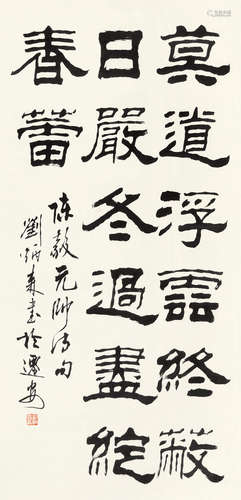 莫道浮雲終蔽
日嚴冬過盡綻
春蕾
陳毅元帥詩句
劉炳森書於遷安